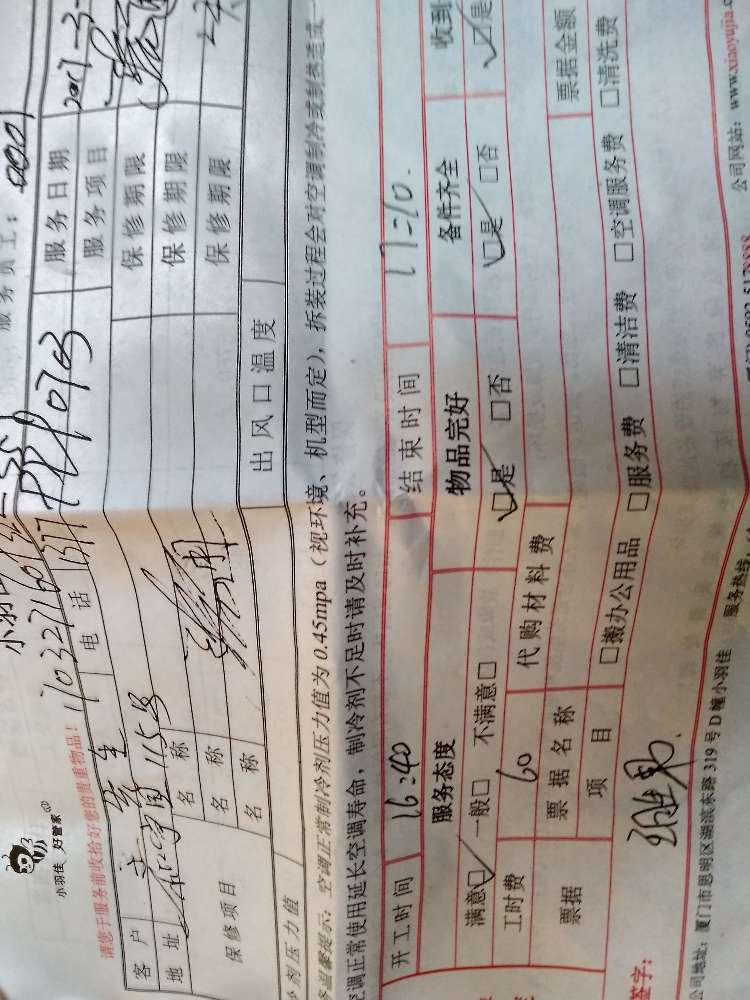 小羽佳 好管家
请您于服务前收给好您的贵重物品！
服务员工：0001
客户
电话
服务日期 2017-3-
地址
服务项目
保修项目
名称
保修期限
名称
保修期限
名称
保修期限
剂压力值
出风口温度
温馨提示：空调正常制冷剂压力值为0.45mpa（视环境、机型而定），拆装过程会对空调制冷或制热造成一
空调正常使用延长空调寿命，制冷剂不足时请及时补充。
开工时间 16:40 结束时间 17:10.
服务态度 物品完好 备件齐全 收到
满意☑ 一般□ 不满意□ ☑是 □否 ☑是 □否 ☑是
工时费 60 代购材料费
票据 票据名称 票据金额
项目 □搬办公用品 □服务费 □清洁费 □空调服务费 □清洗费
签字：
公司地址：厦门市思明区湖滨东路319号D幢小羽佳 服务热线： 公司网站：www.xiaoyujia.c